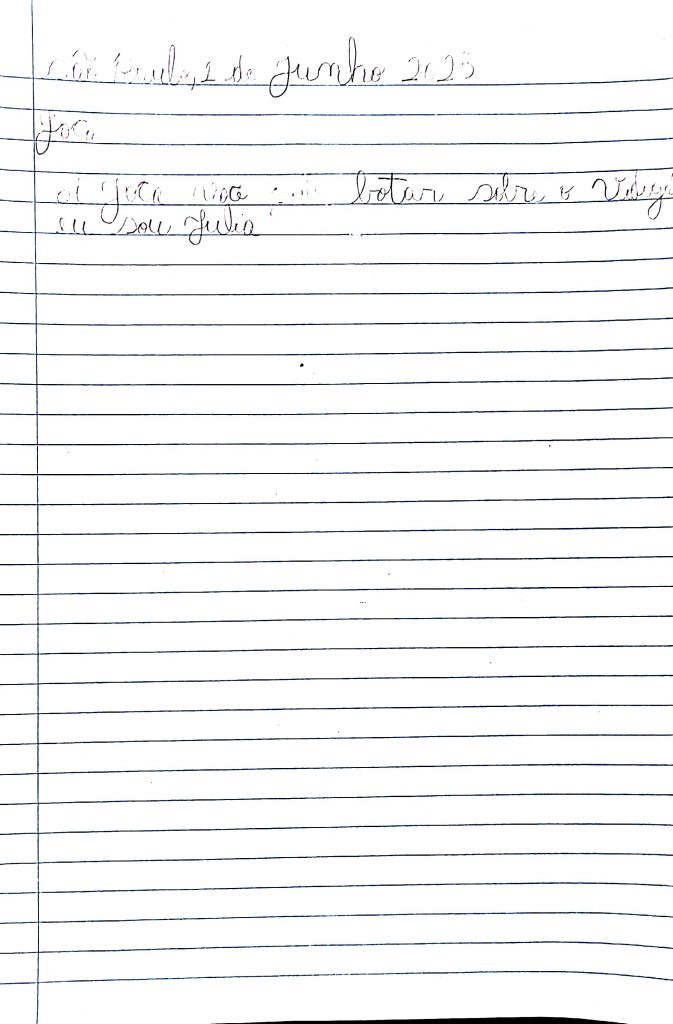 São Paulo, 1 de Junho 2023
Joca
oi Joca não botar sobre o
eu sou Julia